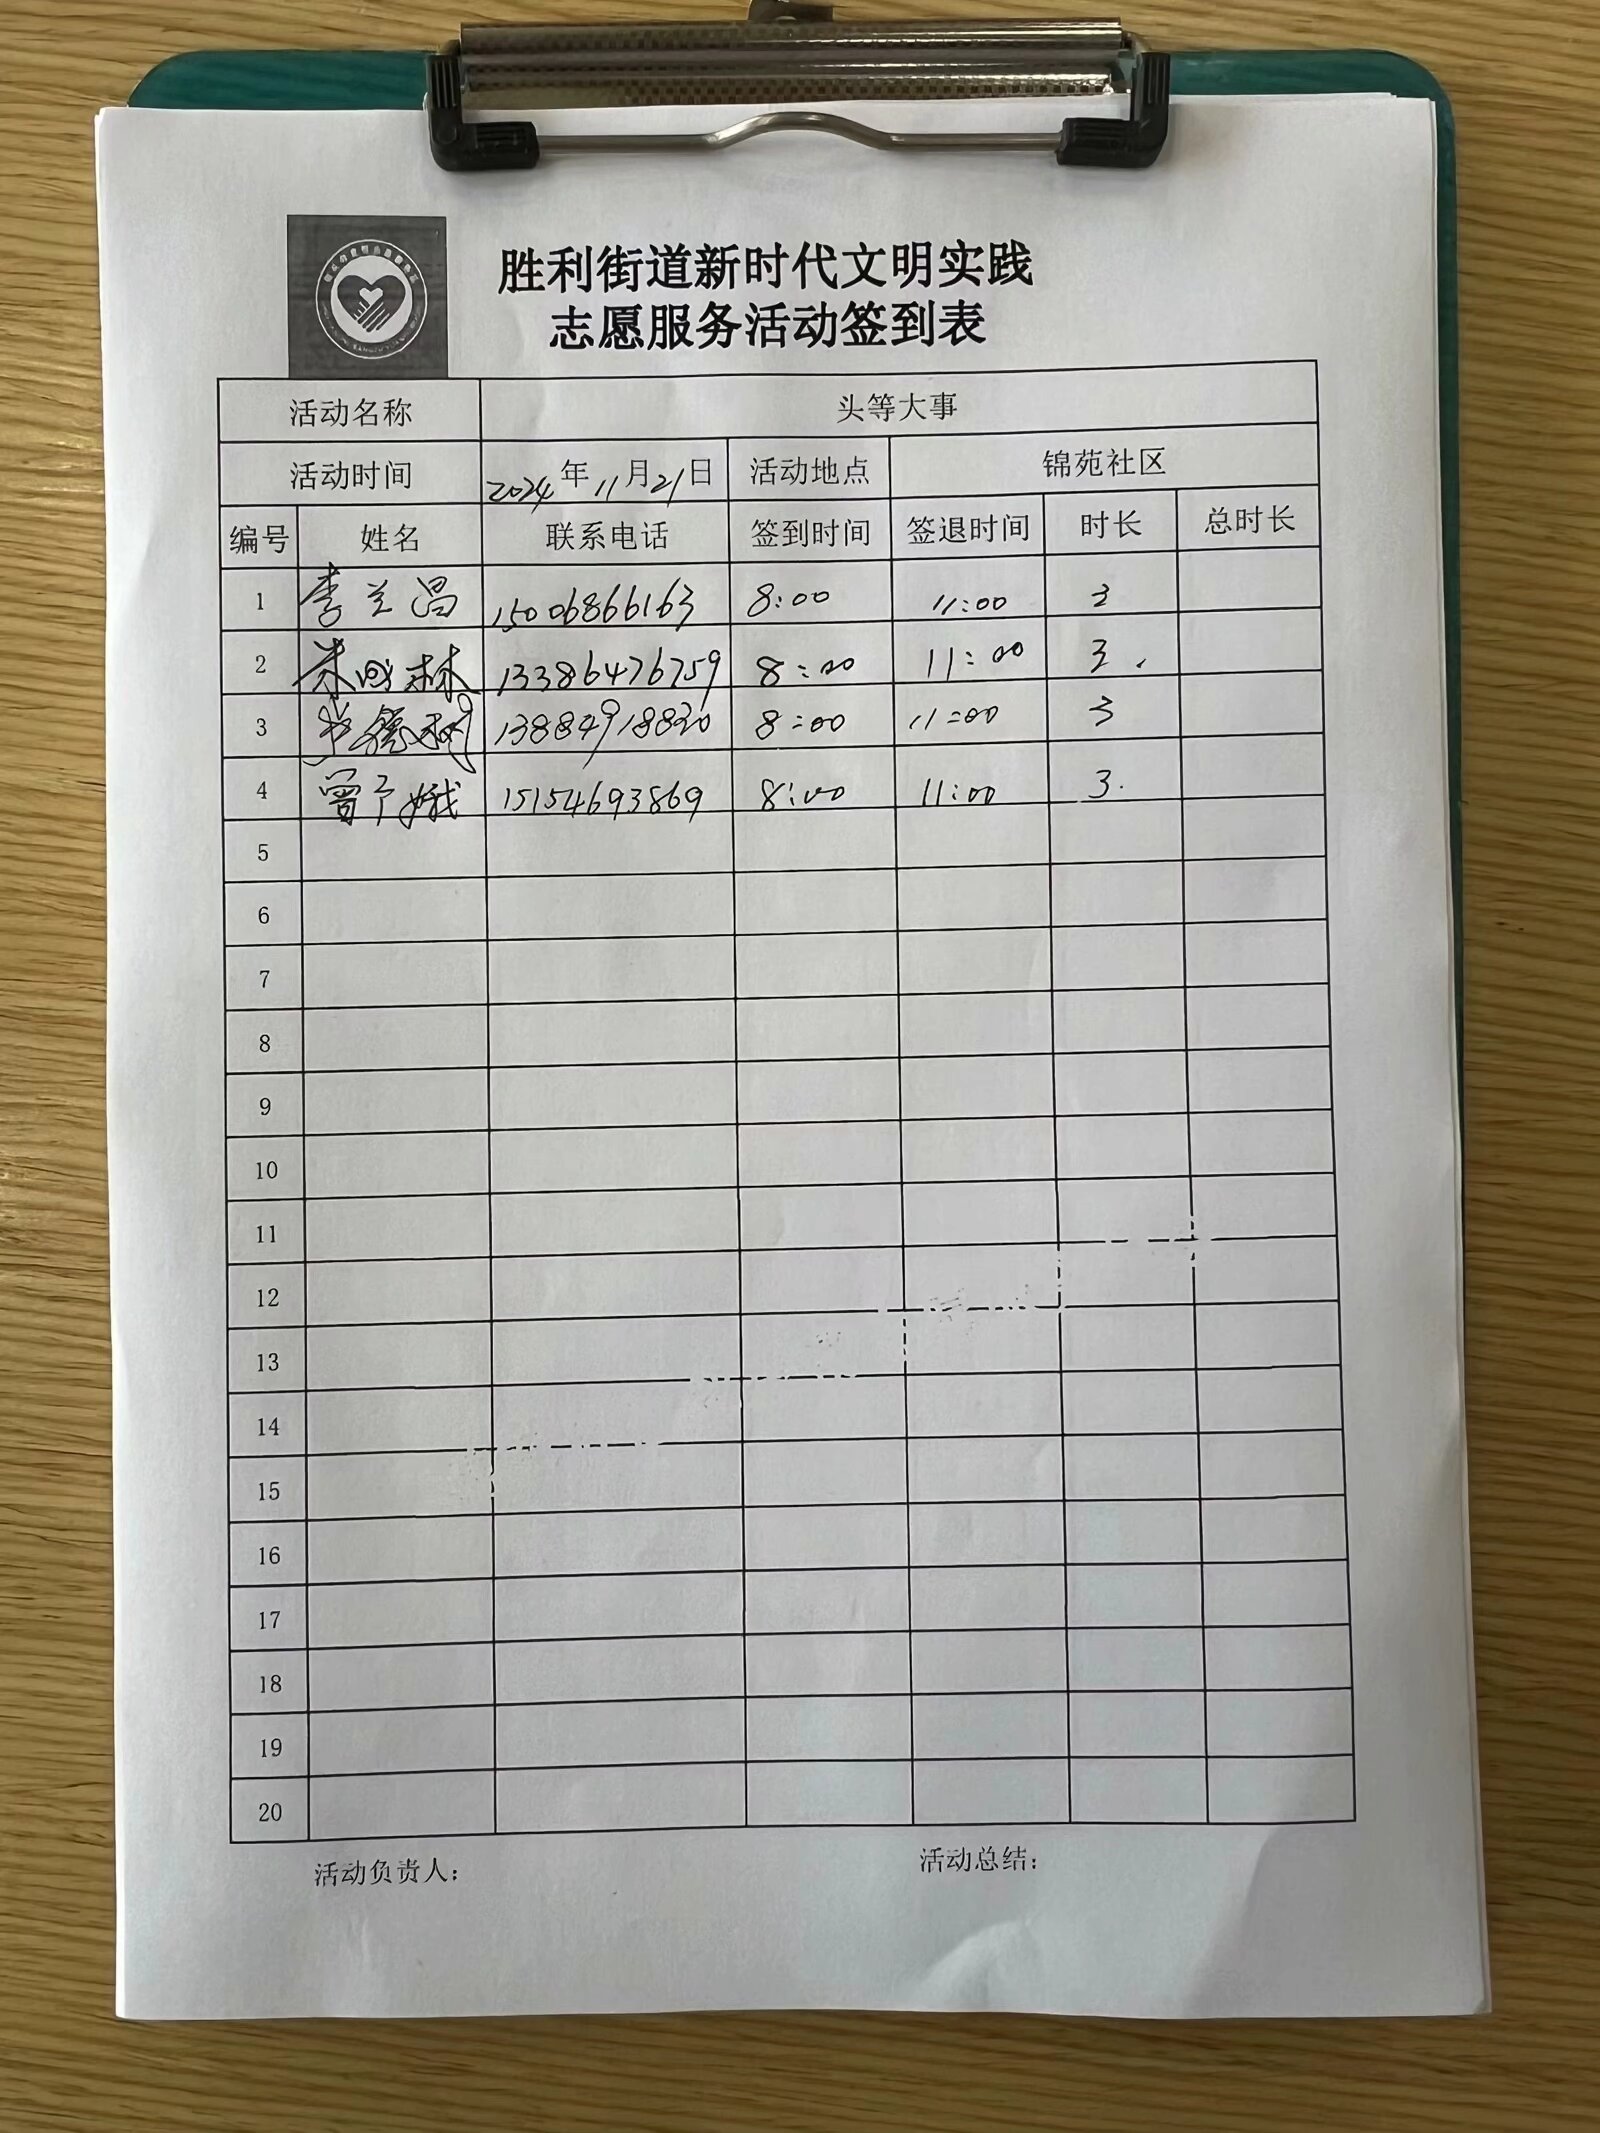 胜利街道新时代文明实践
志愿服务活动签到表
活动名称 头等大事
活动时间 2024年11月21日 活动地点 锦苑社区
编号 姓名 联系电话 签到时间 签退时间 时长 总时长
1 李兰昌 15006866163 8:00 11:00 3
2 朱成林 13386476759 8:00 11:00 3
3 13884918830 8:00 11:00 3
4 曾予娥 15154693869 8:00 11:00 3
5
6
7
8
9
10
11
12
13
14
15
16
17
18
19
20
活动负责人: 活动总结: